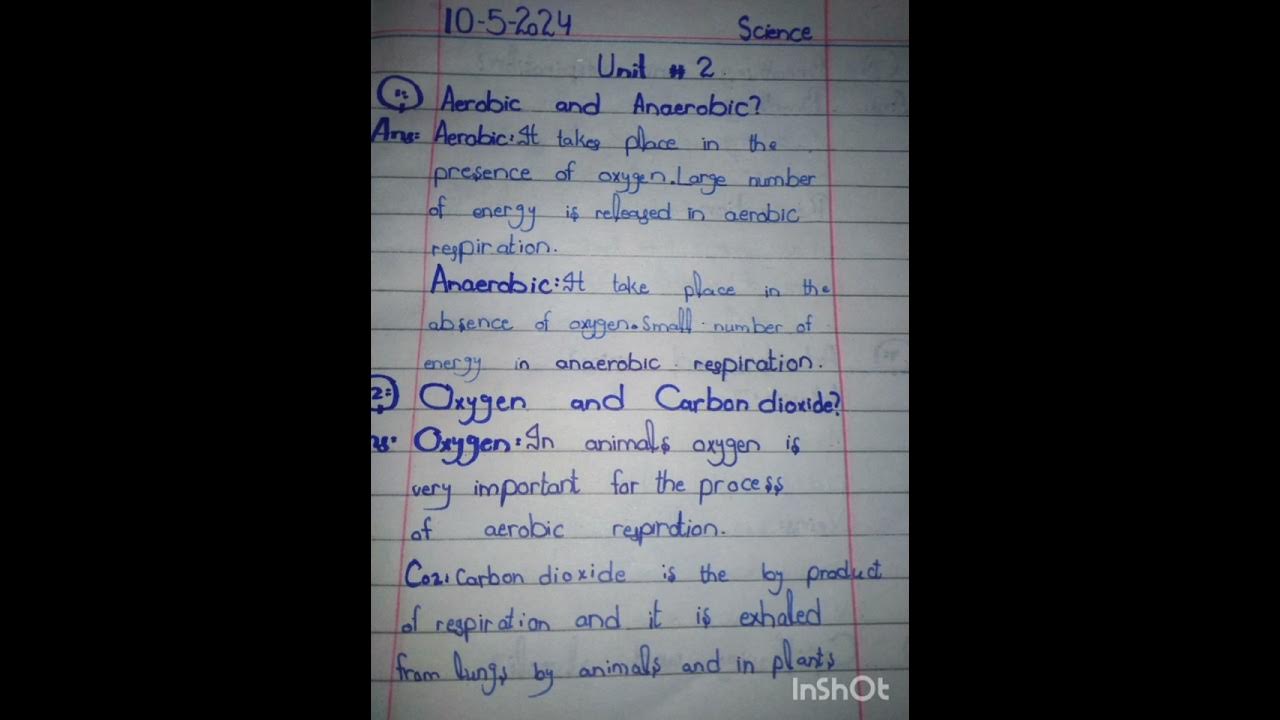 10-5-2024 Science
Unit # 2
1: Aerobic and Anaerobic?
Ans: Aerobic: It takes place in the
presence of oxygen. Large number
of energy is released in aerobic
respiration.
Anaerobic: It take place in the
absence of oxygen. Small number of
energy in anaerobic respiration.
2: Oxygen and Carbon dioxide?
ns: Oxygen: In animals oxygen is
very important for the process
of aerobic respiration.
Co2: Carbon dioxide is the by product
of respiration and it is exhaled
from lungs by animals and in plants
InShOt